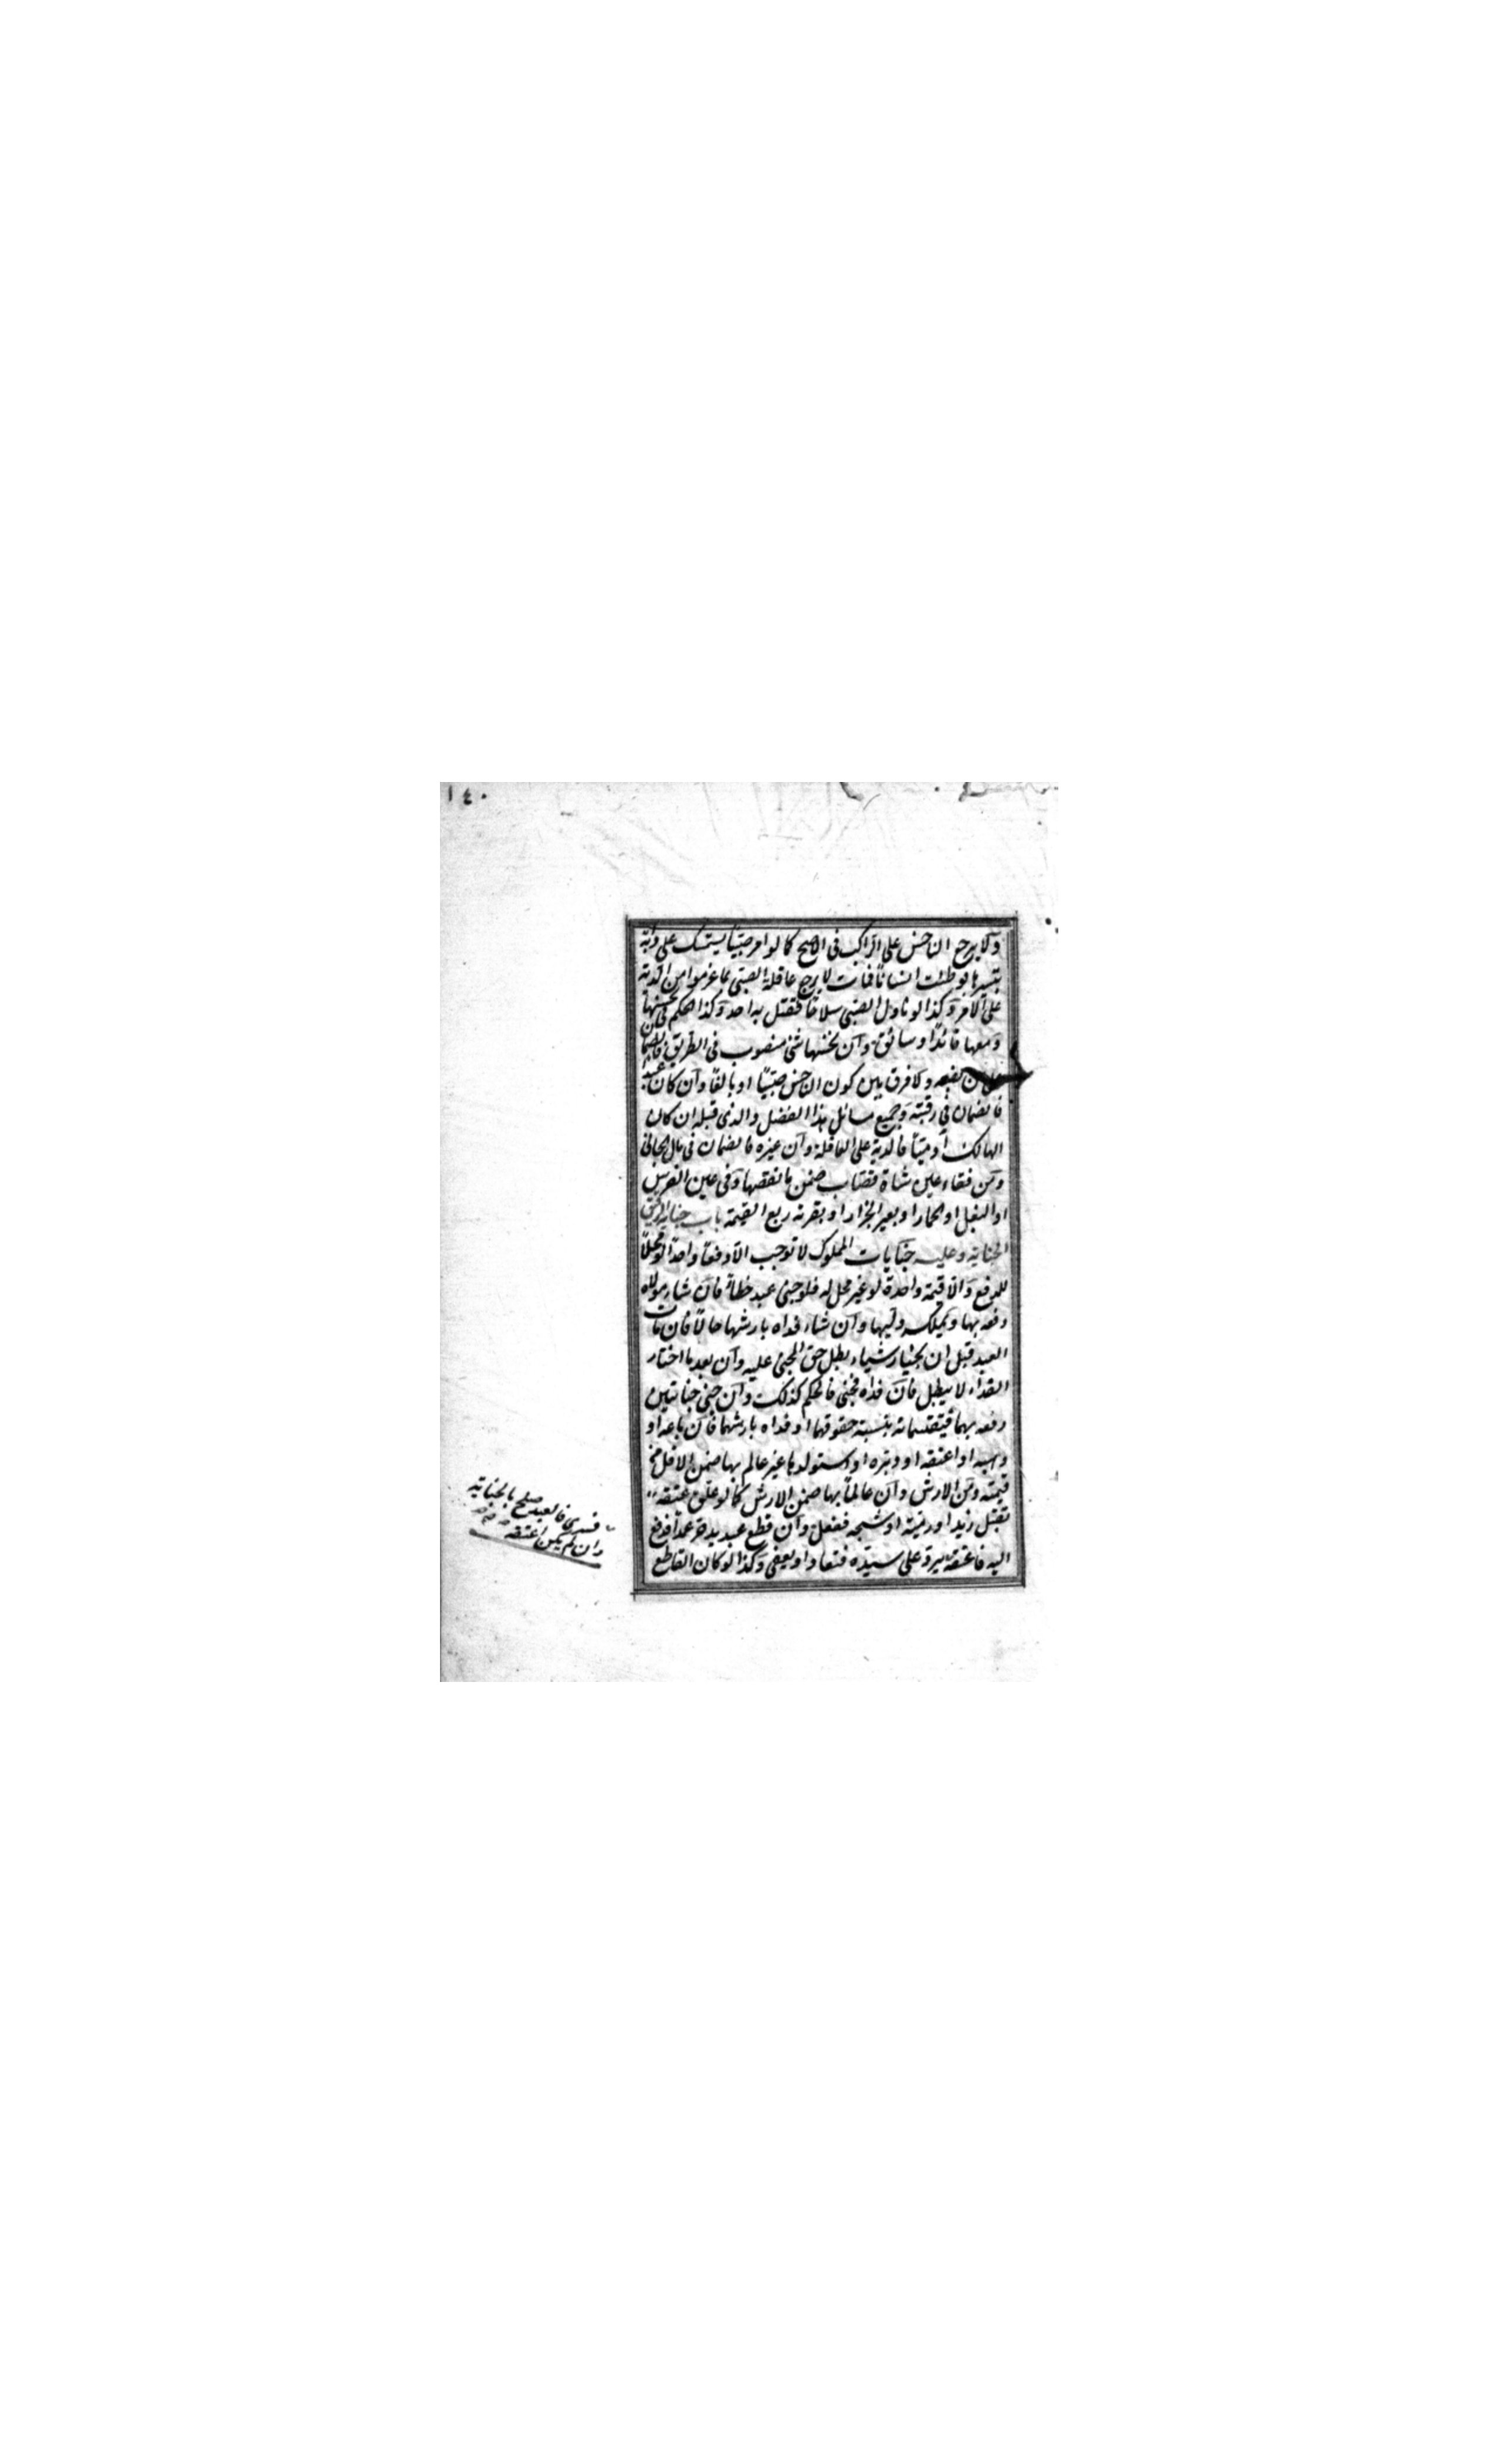 ١٤٠
ولا يرجع الناخس على الراكب في الاصح كما لو امر صبيا يستمسك على دابة
بتسييرها فوطئت انسانا فمات لا يرجع عاقلة الصبي بما غرموا من الدية
على الآمر وكذا لو ناول الصبي سلاحا فقتل به احدا وكذا الحكم في نخسها
ومعها قائد او سائق وان نخسها شئ منصوب في الطريق فالضمان
على من نصبه ولا فرق بين كون الناخس صبيا او بالغا وان كان عبدا
فالضمان في رقبته وجميع مسائل هذا الفصل والذي قبله ان كان
الهالك آدميا فالدية على العاقلة وان غيره فالضمان في مال الجاني
ومن فقاء عين شاة قصاب ضمن ما نقصها وفي عين الفرس
او البغل او الحمار او بعير الجزار او بقرته ربع القيمة باب جناية الرقيق
الجناية وعليه جنايات المملوك لا توجب الا دفعا واحدا لو محلا
للدفع والا قيمة واحدة لو غير محل له فلو جنى عبد خطأ فان شاء مولاه
دفعه بها ويملكه وليها وان شاء فداه بارشها حالا فان مات
العبد قبل ان يختار شياء بطل حق المجنى عليه وان بعد ما اختار
الفداء لا يبطل فان فداه فجنى فالحكم كذلك وان جنى جنايتين
دفعه بهما فيقتسمانه بنسبة حقوقهما او فداه بارشهما فان باعه او
وهبه او اعتقه او دبره او استولدها غير عالم بها ضمن الاقل من
قيمته ومن الارش وان عالما بها ضمن الارش كما لو علق عتقه
بقتل زيد او رميه او شجه ففعل وان قطع عبد يد حر عمدا فدفع
اليه فاعتقه يرد على سيده فيقاد او يعفى وكذا لو كان القاطع
فسرى فالعبد صلح بالجناية
وان لم يكن اعتقه